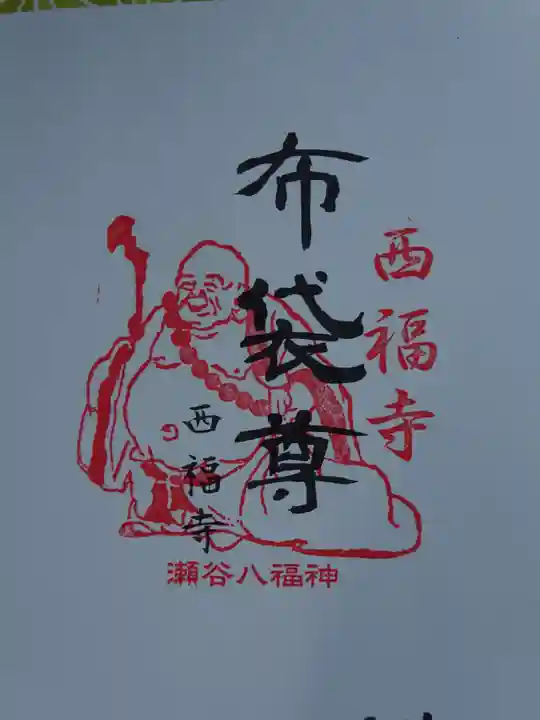 西福寺
布袋尊
西福寺
瀬谷八福神